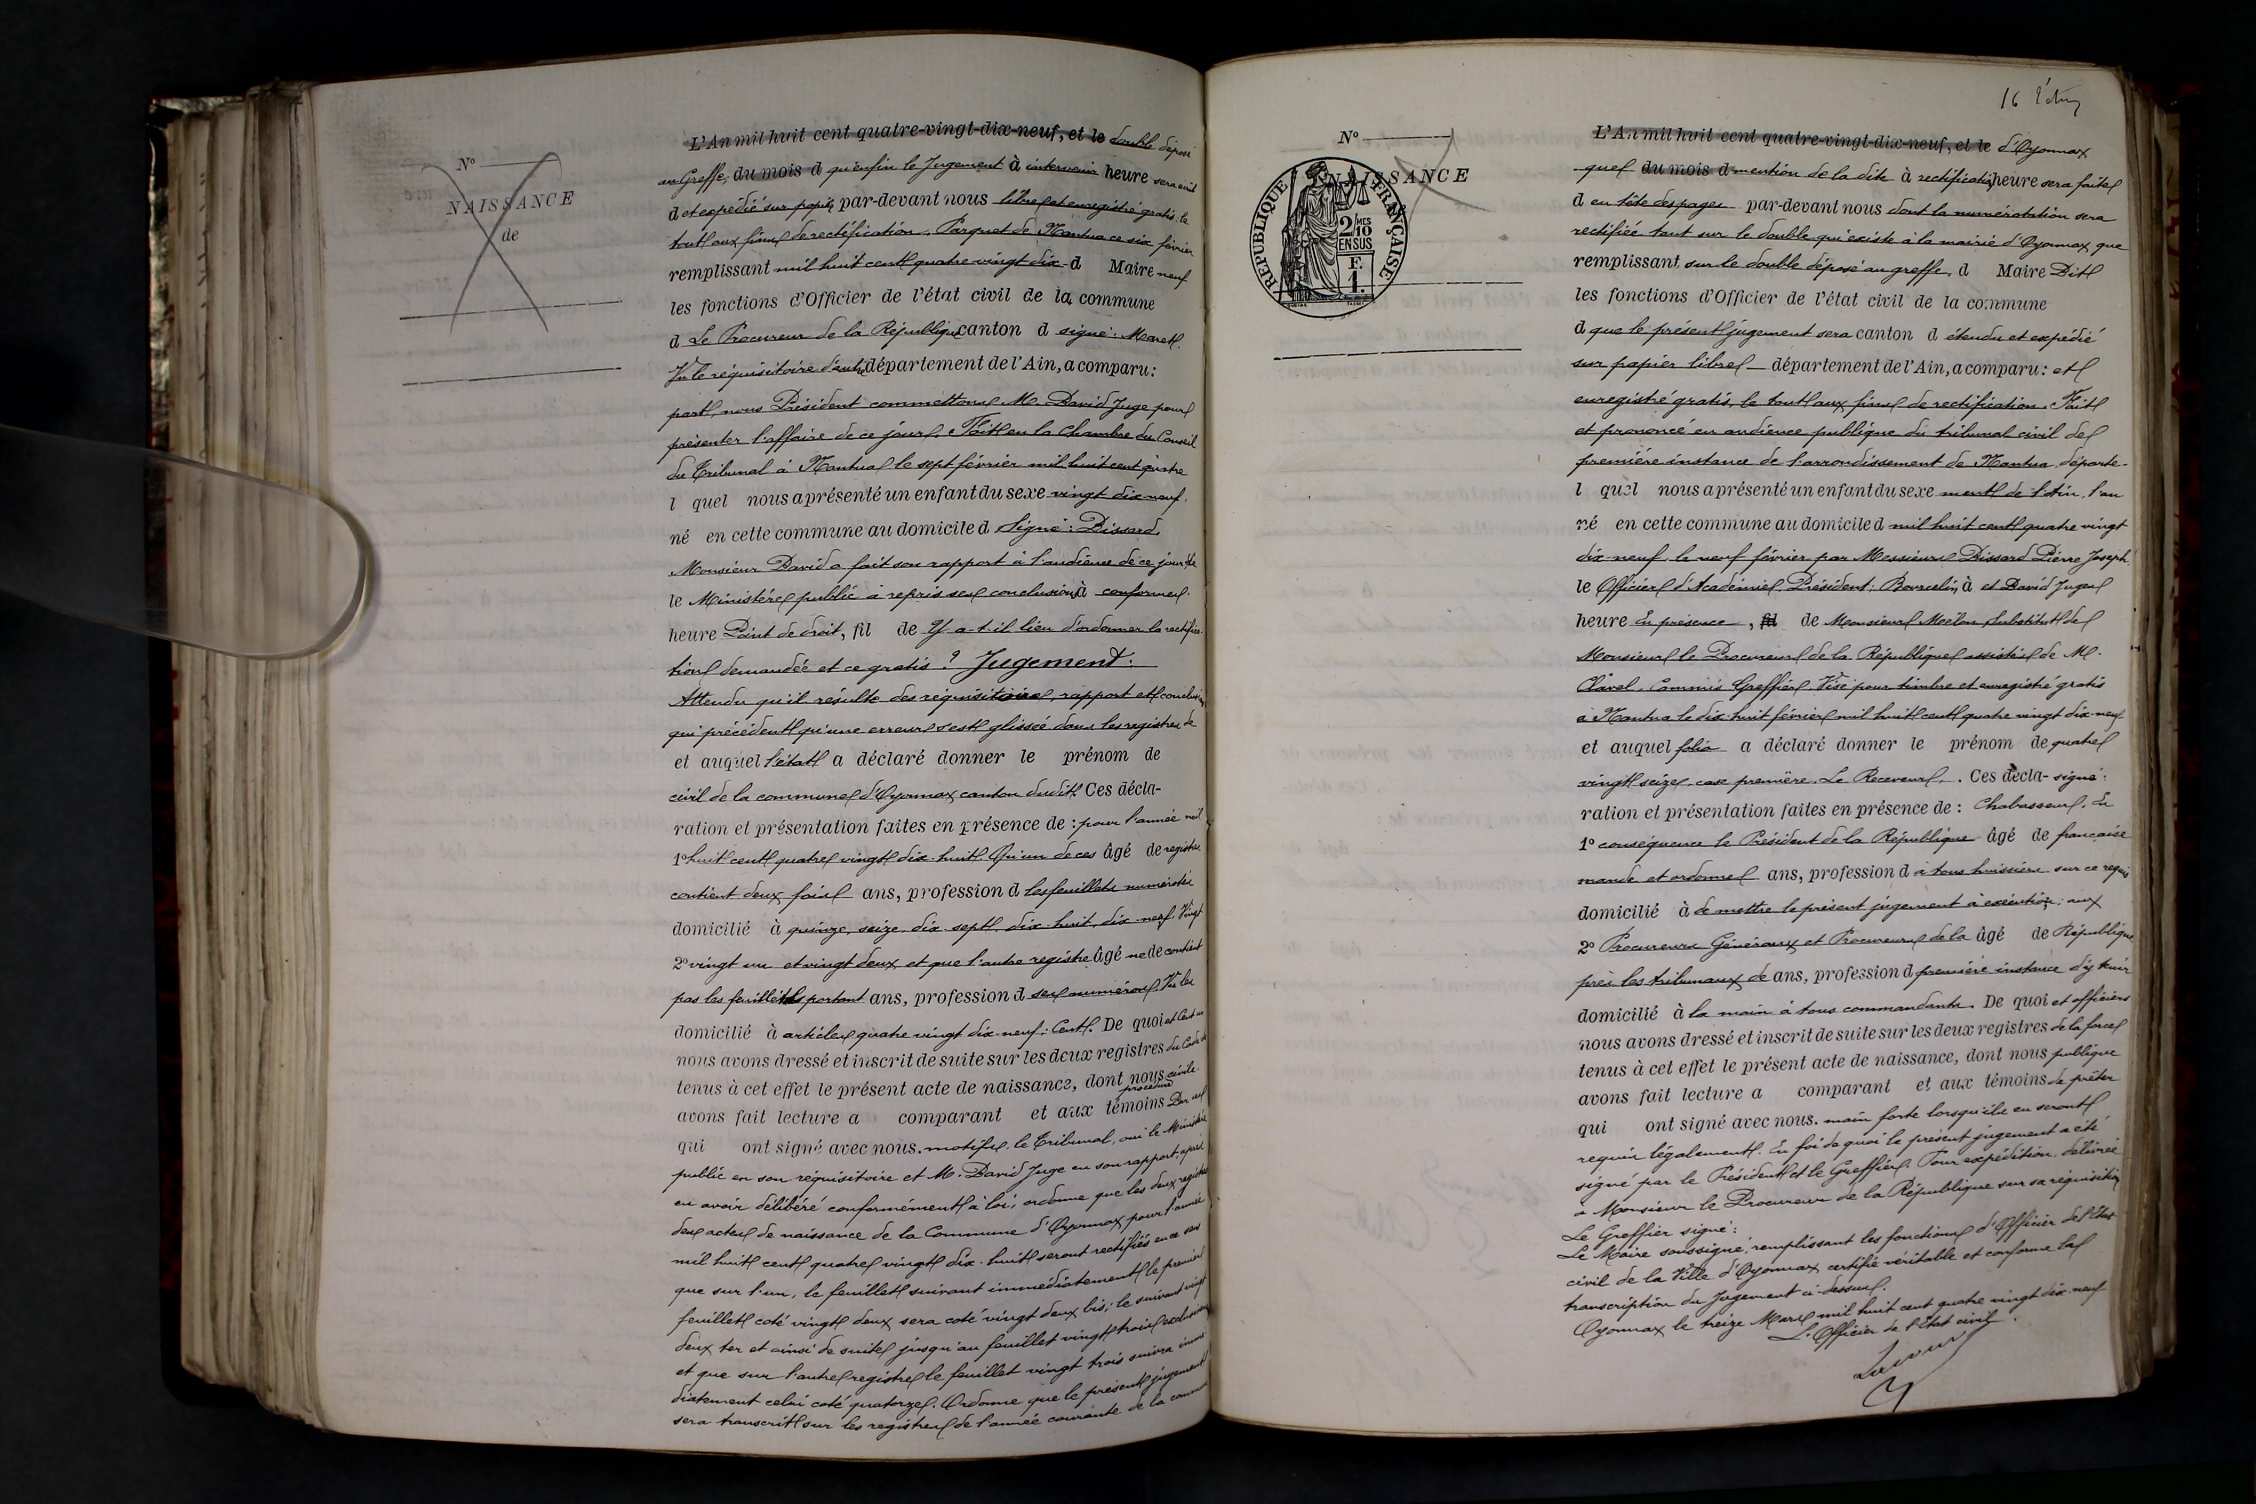 N°
NAISSANCE
de
L'An mil huit cent quatre-vingt-dix-neuf, et le double déposé
au Greffe, du mois d qu'enfin le Jugement à intervenir heure sera écrit
d et expédié sur papier par-devant nous libre et enregistré gratis, le
tout aux fins de rectification. Parquet de Nantua ce six février
remplissant mil huit cent quatre vingt dix d Maire neuf
les fonctions d'Officier de l'état civil de la commune
d Le Procureur de la République canton d signé :
Vu le réquisitoire d'autre département de l'Ain, a comparu :
part, nous Président commettons M. David Juge pour
présenter l'affaire de ce jour. Fait en la Chambre du Conseil
du Tribunal à Nantua le sept février mil huit cent quatre
l quel nous a présenté un enfant du sexe vingt dix neuf.
né en cette commune au domicile d Signé : Dissard.
Monsieur David a fait son rapport à l'audience de ce jour & le
le Ministère public a repris ses conclusions à conformes.
heure Point de droit, fil de Y a-t-il lieu d'ordonner la rectifica-
tion demandée et ce gratis ? Jugement :
Attendu qu'il résulte des réquisitoires, rapport et conclusions
qui précèdent qu'une erreur s'est glissée dans les registres de
et auquel l'état a déclaré donner le prénom de
civil de la commune d'Oyonnax canton dudit. Ces décla-
ration et présentation faites en présence de : pour l'année mil
1° huit cent quatre vingt dix-huit. Qu'un de ces âgé de registres
contient deux fois ans, profession d les feuillets numérotés
domicilié à quinze, seize, dix-sept, dix-huit, dix-neuf, Vingt
2° vingt un et vingt deux et que l'autre registre âgé ne de contient
pas les feuillets portant ans, profession d ses numéros. Vu les
domicilié à articles quatre vingt dix-neuf ; Cent. De quoi et Cent un
nous avons dressé et inscrit de suite sur les deux registres du Code de
tenus à cet effet le présent acte de naissance, dont nous civile
procédure
avons fait lecture a comparant et aux témoins Par ces
qui ont signé avec nous. motifs, le Tribunal, ouï le Ministère
public en son réquisitoire et M. David Juge en son rapport, après
en avoir délibéré conformément à loi, ordonne que les deux registres
des actes de naissance de la Commune d'Oyonnax pour l'année
mil huit cent quatre vingt dix-huit seront rectifiés en ce sens
que sur l'un, le feuillet suivant immédiatement le premier
feuillet coté vingt deux sera coté vingt deux bis ; le suivant vingt
deux ter et ainsi de suite jusqu'au feuillet vingt trois exclusivement
et que sur l'autre registre le feuillet vingt trois suivra immé-
diatement celui coté quatorze. Ordonne que le présent jugement
sera transcrit sur les registres de l'année courante de la commune
16
N°
NAISSANCE
RÉPUBLIQUE FRANÇAISE
2/10
EN SUS
F.
1.
L'An mil huit cent quatre-vingt-dix-neuf, et le d'Oyonnax
que du mois d mention de la dite à rectification heure sera faite
d en tête des pages par-devant nous dont la numérotation sera
rectifiée tant sur le double qui existe à la mairie d'Oyonnax que
remplissant sur le double déposé au greffe, d Maire Dit
les fonctions d'Officier de l'état civil de la commune
d que le présent jugement sera canton d étendu et expédié
sur papier libre département de l'Ain, a comparu : et
enregistré gratis, le tout aux fins de rectification. Fait
et prononcé en audience publique du tribunal civil de
première instance de l'arrondissement de Nantua, départe-
l quel nous a présenté un enfant du sexe ment de l'Ain, l'an
né en cette commune au domicile d mil huit cent quatre vingt
dix neuf le neuf février par Messieurs Dissard Pierre Joseph
le Officier d'Académie, Président ; Bourcelin à et David Juges
heure En présence, fil de Monsieur Moëlan, Substitut de
Monsieur le Procureur de la République assistés de M.
Clavel, Commis Greffier. Visé pour timbre et enregistré gratis
à Nantua le dix-huit février mil huit cent quatre vingt dix neuf
et auquel folio a déclaré donner le prénom de quatre
vingt seize, case première. Le Receveur. Ces décla- signé :
ration et présentation faites en présence de : Chabasseur. En
1° conséquence le Président de la République âgé de française
mande et ordonne ans, profession d à tous huissiers sur ce requis
domicilié à de mettre le présent jugement à exécution ; aux
2° Procureurs Généraux et Procureurs de la âgé de République
près les tribunaux de ans, profession d première instance d'y tenir
domicilié à la main à tous commandants. De quoi et officiers
nous avons dressé et inscrit de suite sur les deux registres de la force
tenus à cet effet le présent acte de naissance, dont nous publique
avons fait lecture a comparant et aux témoins de prêter
qui ont signé avec nous. main forte lorsqu'ils en seront
requis légalement. En foi de quoi le présent jugement a été
signé par le Président et le Greffier. Pour expédition délivrée
à Monsieur le Procureur de la République sur sa réquisition
Le Greffier signé :
Le Maire soussigné, remplissant les fonctions d'Officier de l'Etat
civil de la Ville d'Oyonnax certifie véritable et conforme la
transcription du Jugement ci-dessus.
Oyonnax le treize Mars mil huit cent quatre vingt dix neuf
L'Officier de l'Etat civil.